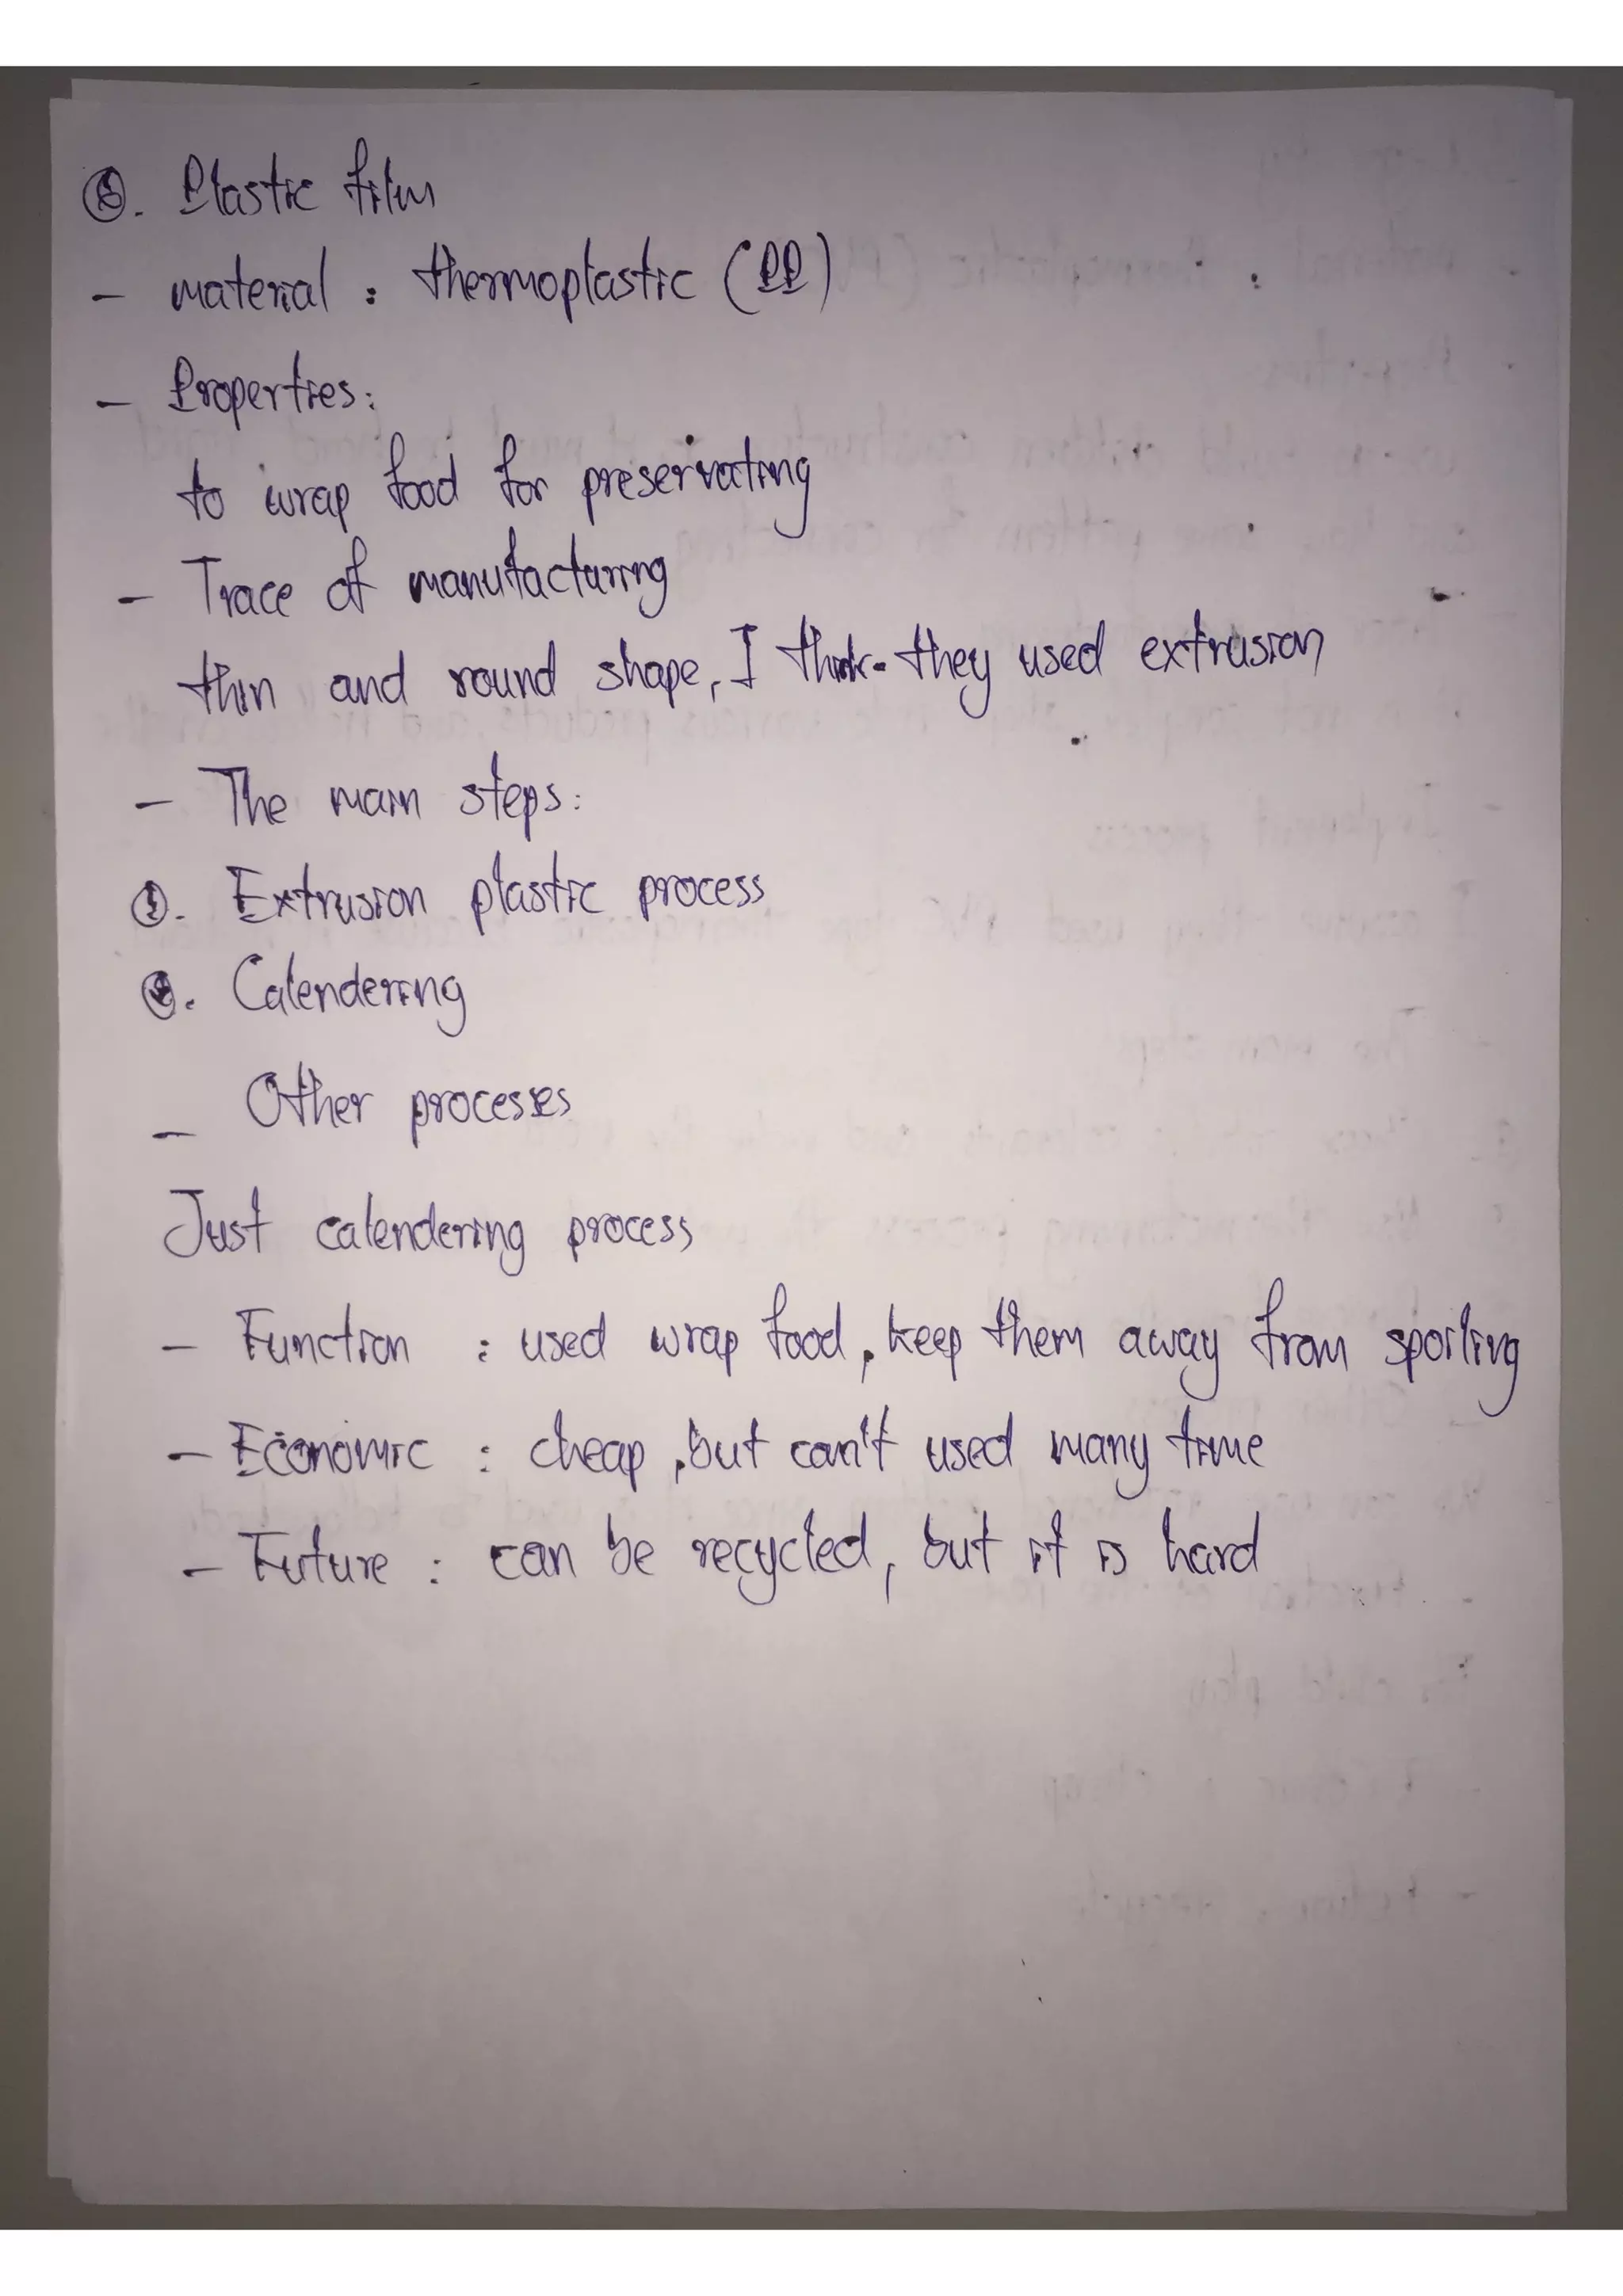 ⑧. Plastic film
- material : thermoplastic (PP)
- Properties:
to wrap food for preservating
- Trace of manufacturing
thin and round shape, I think they used extrusion
- The main steps:
①. Extrusion plastic process
②. Calendering
- Other processes
Just calendering process
- Function : used wrap food, keep them away from spoiling
- Economic : cheap, but can't used many time
- Future : can be recycled, but it is hard